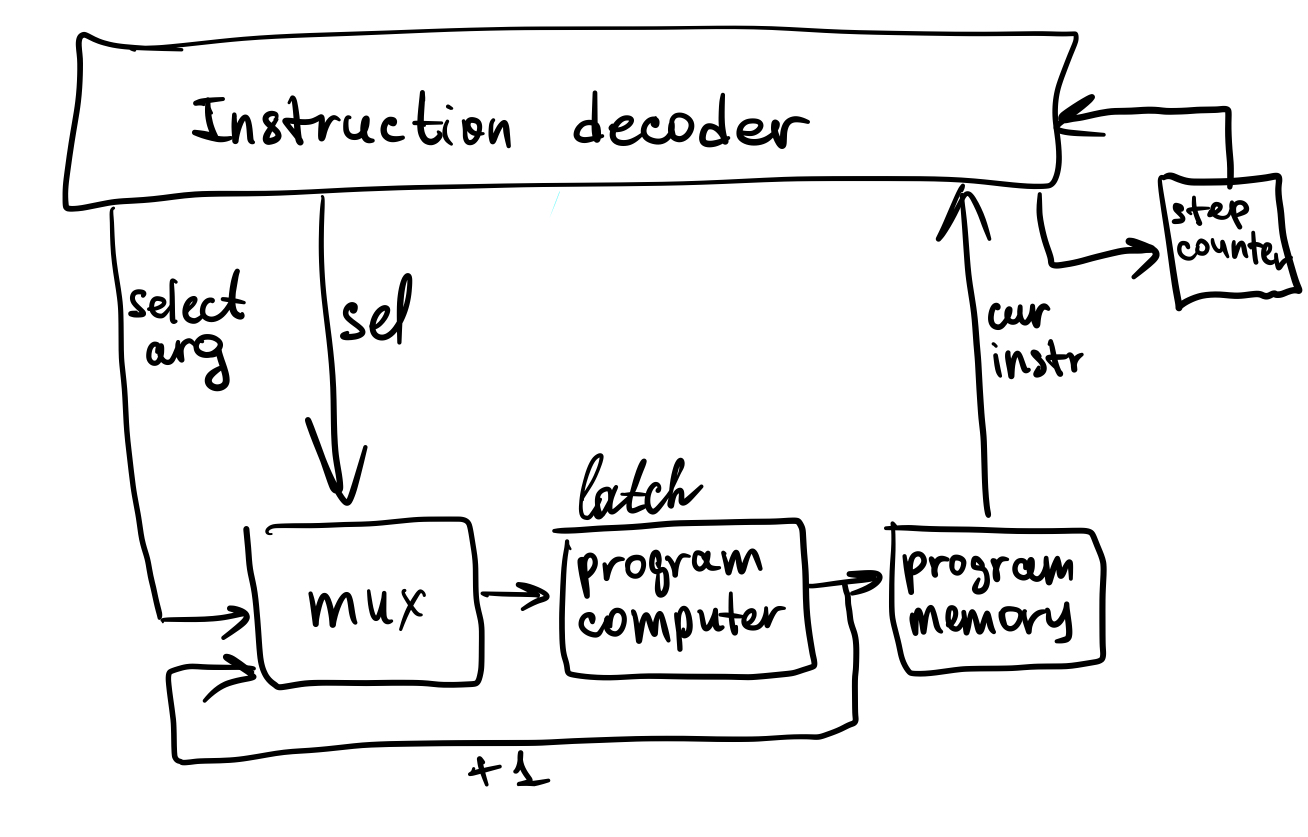 Instruction decoder
step
counter
select
arg
sel
cur
instr
latch
program
computer
program
memory
mux
+1